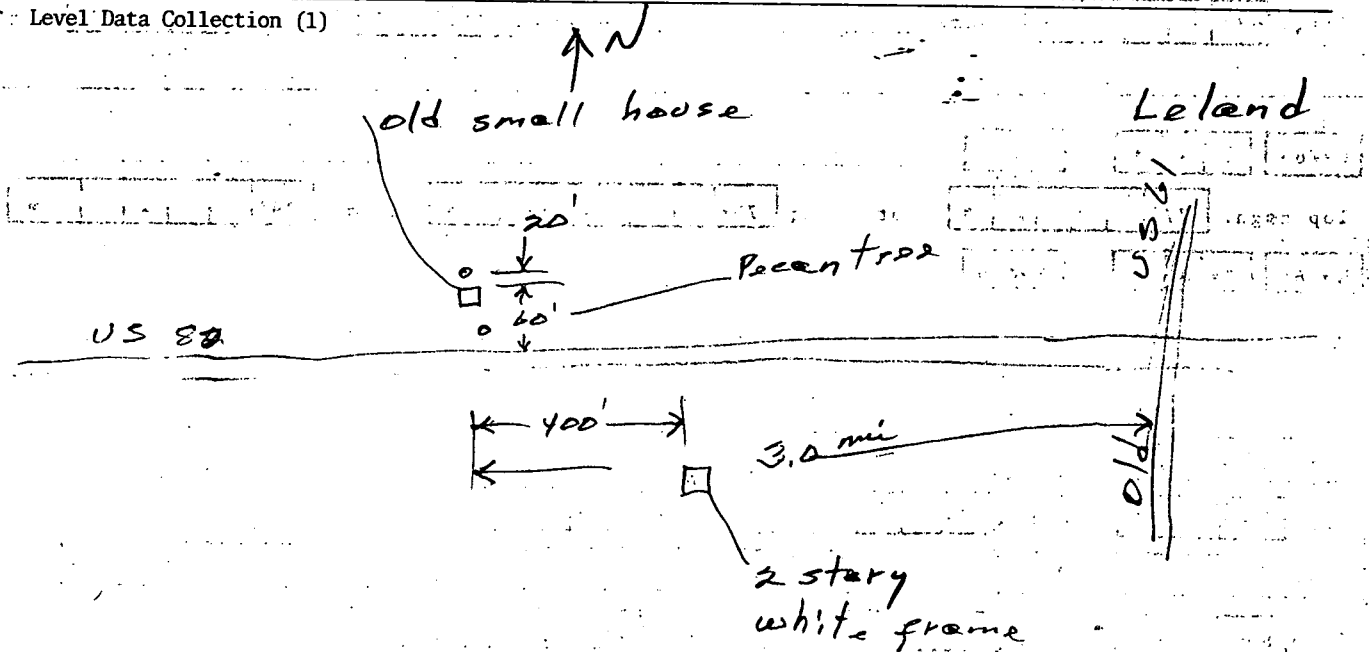 Level Data Collection (1)
N
old small house
Leland
20'
Pecan tree
60'
US 82
Old US 61
400'
3.0 mi
2 story
white frame